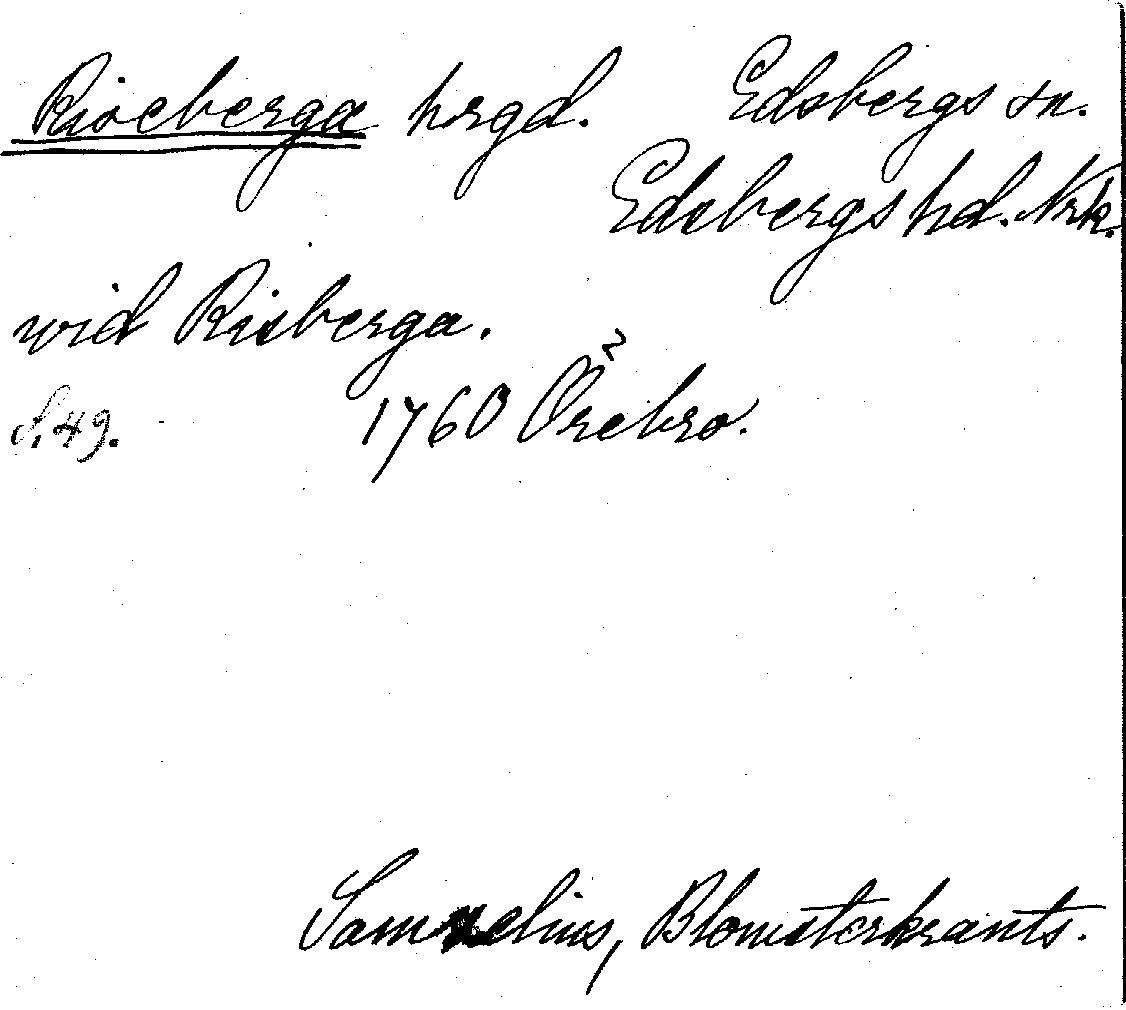 Riseberga hrgd. Edsbergs sn.
Edsbergs hd. Nrk.
wid Risberga.
S. 49. 1760 Örebro.
Samuelius, Blomsterkrants.